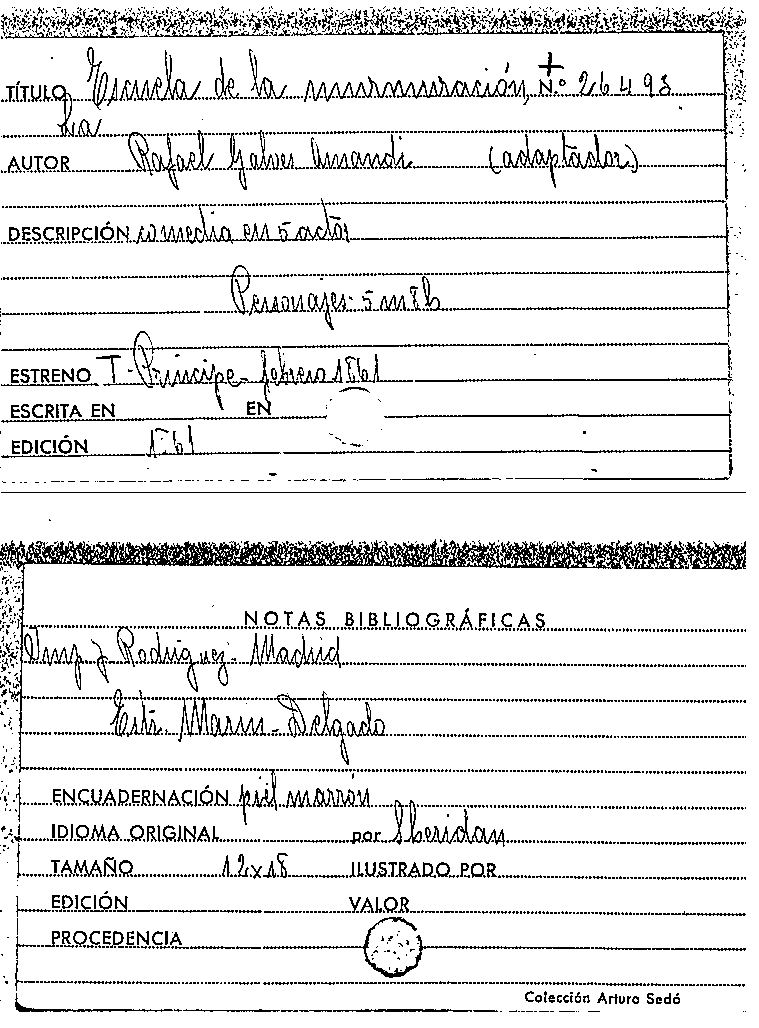 TÍTULO Escuela de la murmuración, N.º 26498
La
AUTOR Rafael Galves Amandi (adaptador)
DESCRIPCIÓN comedia en 5 actos
Personajes-5m8h
ESTRENO T-Príncipe-febrero 1861
ESCRITA EN EN
EDICIÓN 1861
NOTAS BIBLIOGRÁFICAS
Rodríguez-Madrid
Estr. Marin-Delgado
ENCUADERNACIÓN piel marrón
IDIOMA ORIGINAL por Sheridan
TAMAÑO 12x18 ILUSTRADO POR
EDICIÓN VALOR
PROCEDENCIA
Colección Arturo Sedó